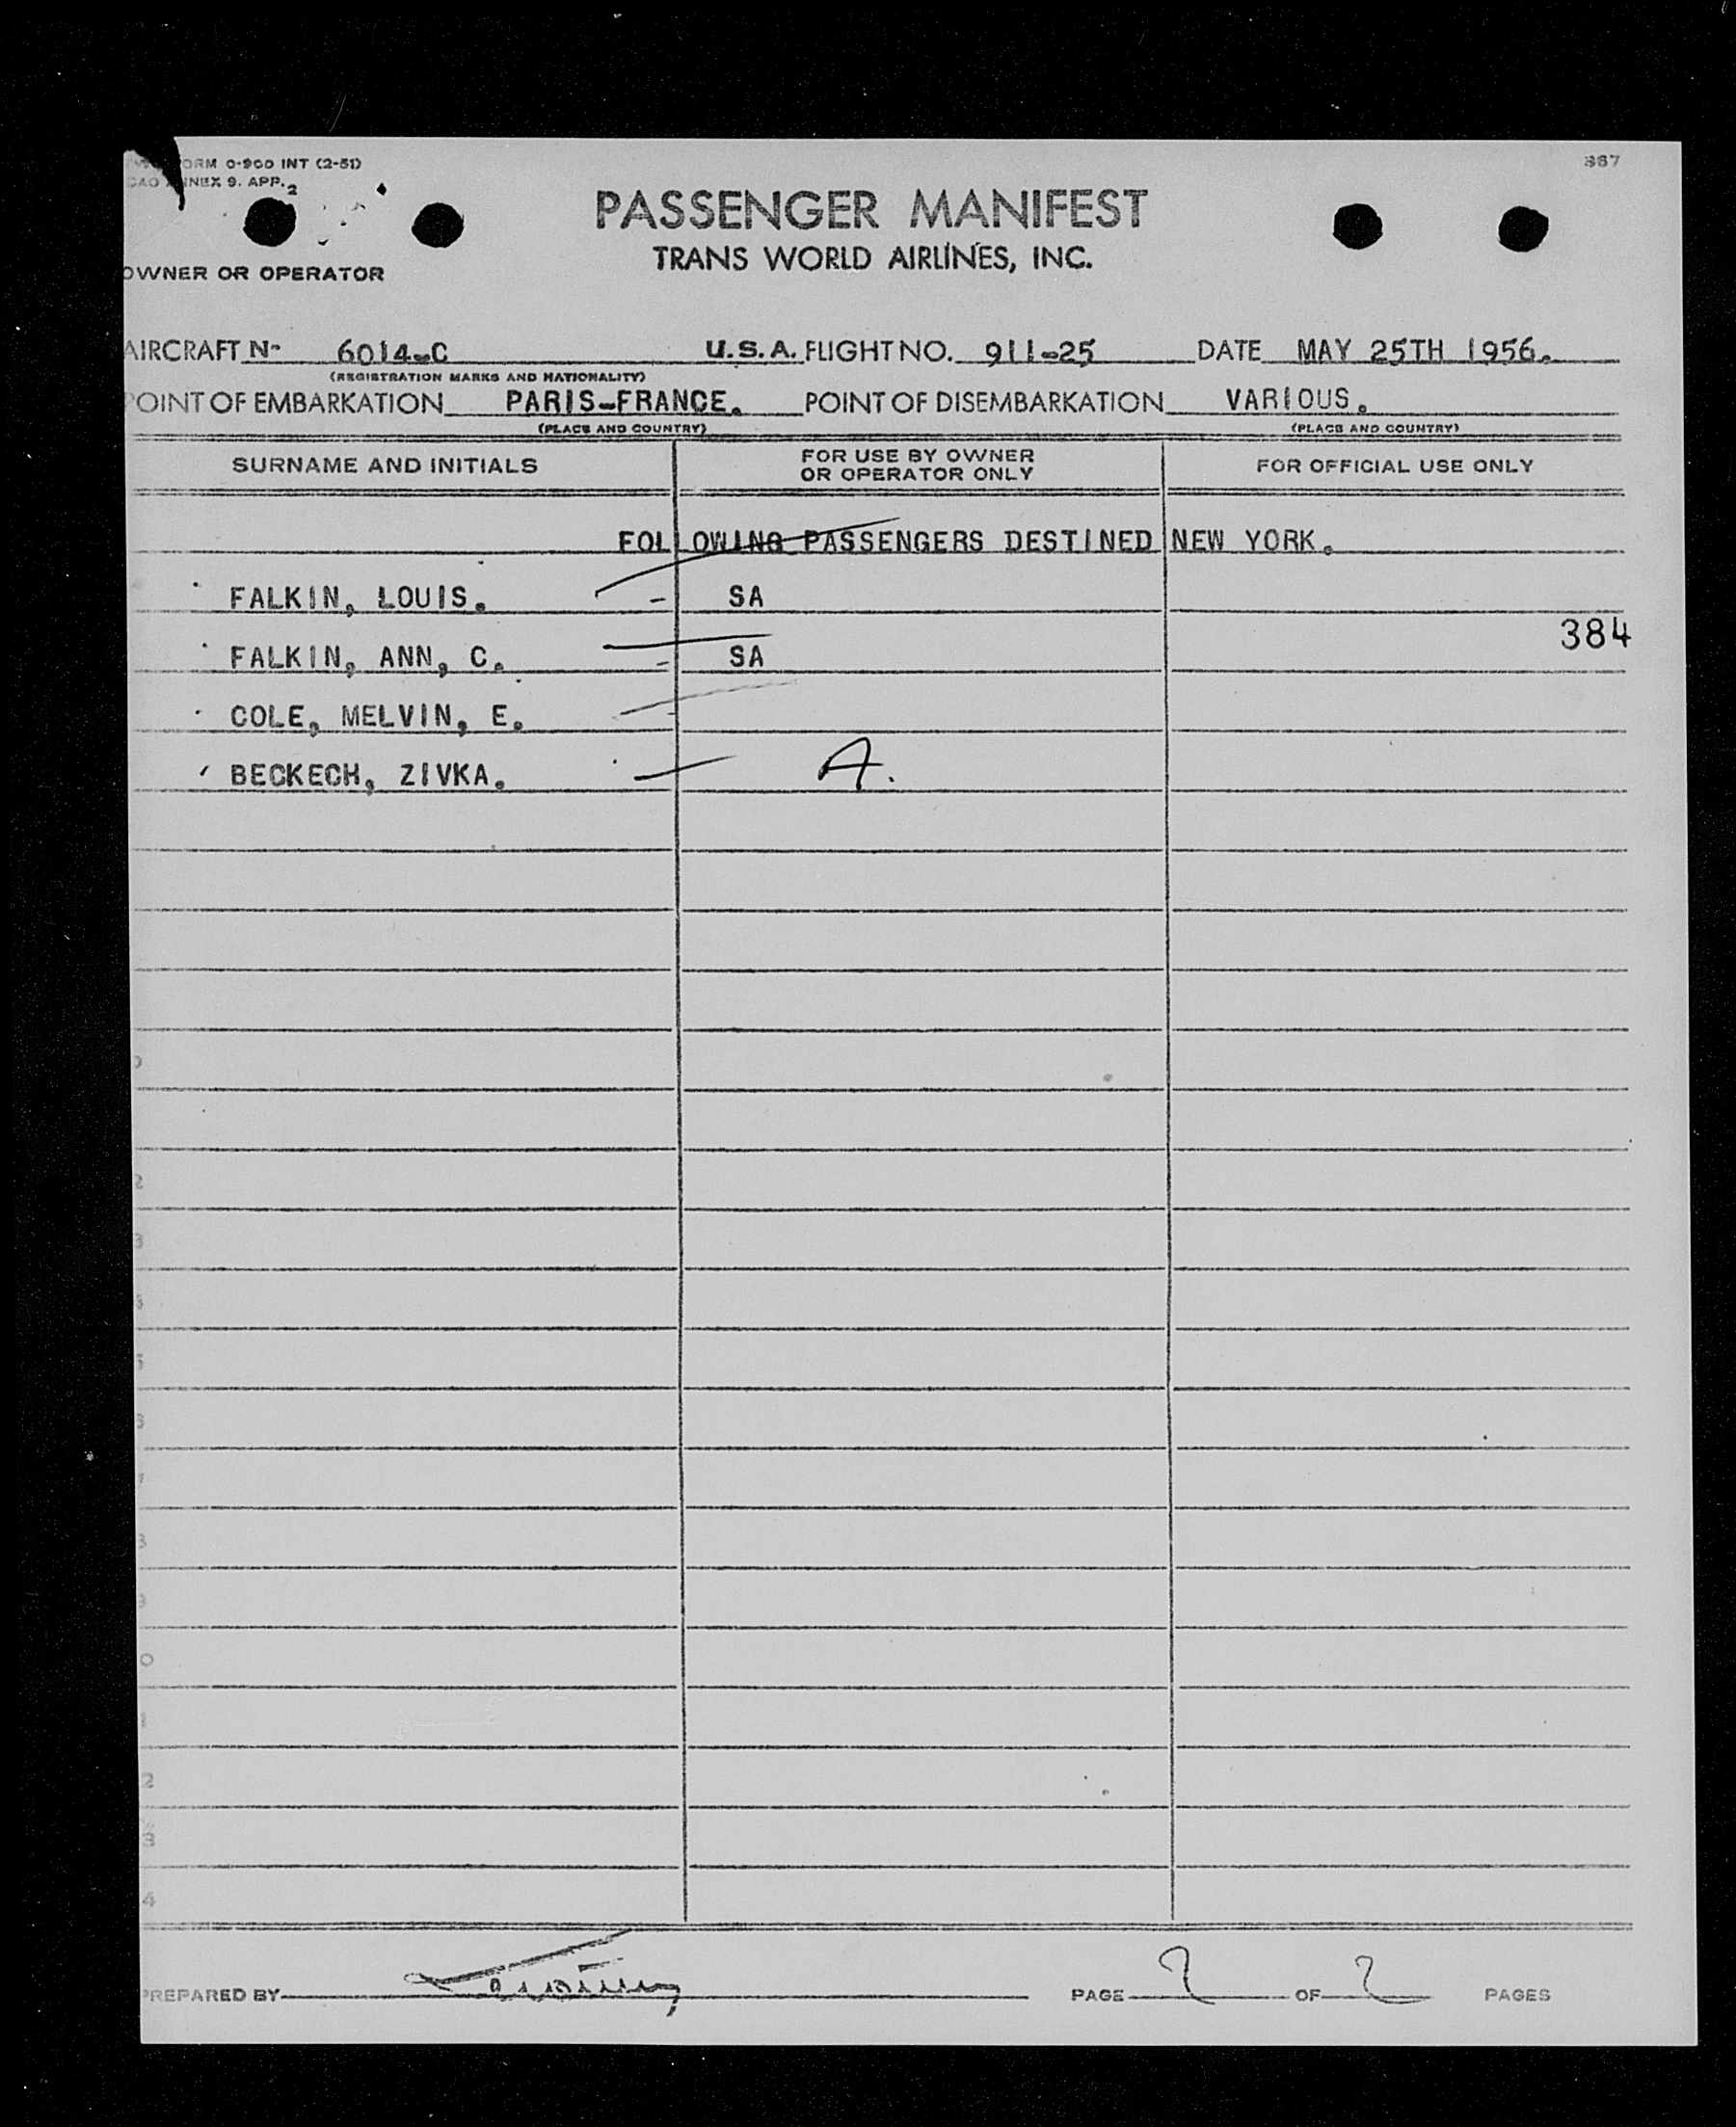 ORM 0-900 INT (2-51)
367
ANNEX 9. APP. 2
PASSENGER MANIFEST
TRANS WORLD AIRLINES, INC.
OWNER OR OPERATOR
AIRCRAFT No 6014-C U.S.A. FLIGHT NO. 911-25 DATE MAY 25TH 1956.
(REGISTRATION MARKS AND NATIONALITY)
POINT OF EMBARKATION PARIS-FRANCE. POINT OF DISEMBARKATION VARIOUS.
(PLACE AND COUNTRY) (PLACE AND COUNTRY)
SURNAME AND INITIALS FOR USE BY OWNER OR OPERATOR ONLY FOR OFFICIAL USE ONLY
FOLLOWING PASSENGERS DESTINED NEW YORK.
FALKIN, LOUIS. - SA
384
FALKIN, ANN, C. - SA
COLE, MELVIN, E. -
BECKECH, ZIVKA. A.
2
3
3
8
9
0
1
2
3
4
PREPARED BY PAGE 2 OF 2 PAGES